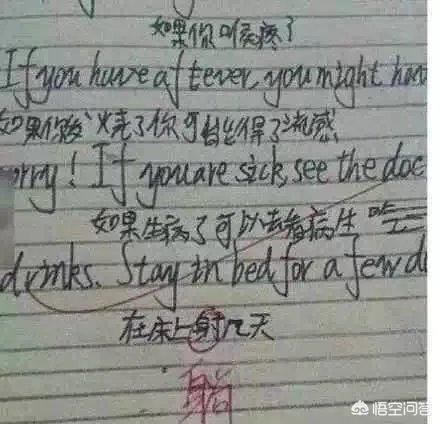 如果你疼了
If you have a fever, you might hav
如果你发烧了你可能得了流感
orry! If you are sick, see the doc
如果生病了可以去看病生
drinks. Stay in bed for a few d
在床上射几天
躺
悟空问答